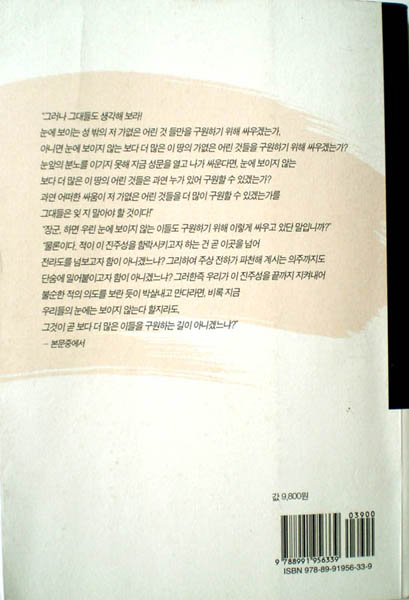 "그러나 그대들도 생각해 보라!
눈에 보이는 성 밖의 저 가없은 어린 것 들만을 구원하기 위해 싸우겠는가,
아니면 눈에 보이지 않는 보다 더 많은 이 땅의 가없은 어린 것들을 구원하기 위해 싸우겠는가?
눈앞의 분노를 이기지 못해 지금 성문을 열고 나가 싸운다면, 눈에 보이지 않는
보다 더 많은 이 땅의 어린 것들은 과연 누가 있어 구원할 수 있겠는가?
과연 어떠한 싸움이 저 가없은 어린 것들을 더 많이 구원할 수 있겠는가를
그대들은 잊 지 말아야 할 것이다!"
"장군, 하면 우린 눈에 보이지 않는 이들도 구원하기 위해 이렇게 싸우고 있단 말입니까?"
"물론이다. 적이 이 진주성을 함락시키고자 하는 건 곧 이곳을 넘어
전라도를 넘보고자 함이 아니겠느냐? 그리하여 주상 전하가 파천해 계시는 의주까지도
단숨에 밀어붙이고자 함이 아니겠느냐? 그러한즉 우리가 이 진주성을 끝까지 지켜내어
불순한 적의 의도를 보란 듯이 박살내고 만다라면, 비록 지금
우리들의 눈에는 보이지 않는다 할지라도,
그것이 곧 보다 더 많은 이들을 구원하는 길이 아니겠느냐?"
– 본문중에서
값 9,800원
03900
9 788991 956339
ISBN 978-89-91956-33-9